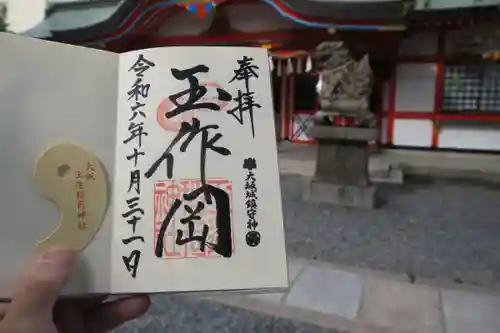 奉拝
大坂城鎮守神
玉作岡
令和六年十月三十一日
大坂
玉造稲荷神社